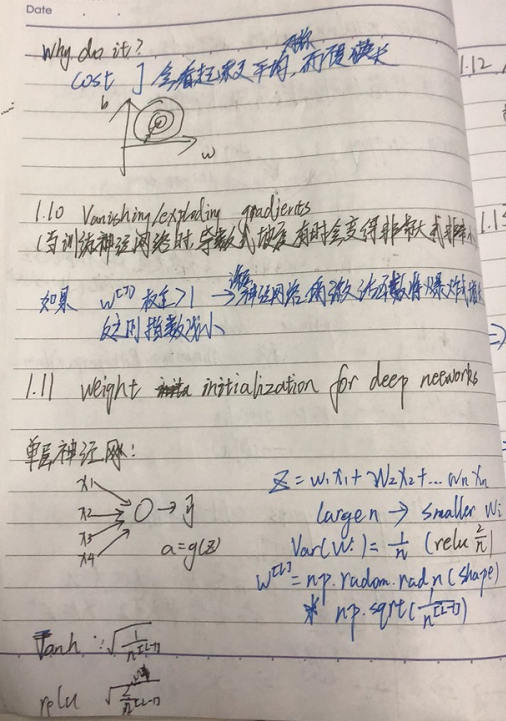 Date
Why do it?
对称
cost J 会看起来更平均,而
b
w
1.12
1.10 Vanishing/exploding gradients
(当训练神经网络时,导数或坡度有时会变得非常大或非常小
1.13
如果 w[l] 权重>1 → 深层神经网络的激活函数将爆炸式增长
反之则指数减小
1.11 weight initialization for deep networks
单层神经网:
x1
x2 O → ŷ
x3
x4 a=g(z)
Z = w1x1 + w2x2 + ... wnxn
large n → smaller wi
Var(wi) = 1/n (relu 2/n)
w[l] = np.radom.radn(shape)
* np.sqrt(1/n[l-1])
Tanh: √1/n[l-1]
relu √2/n[l-1]